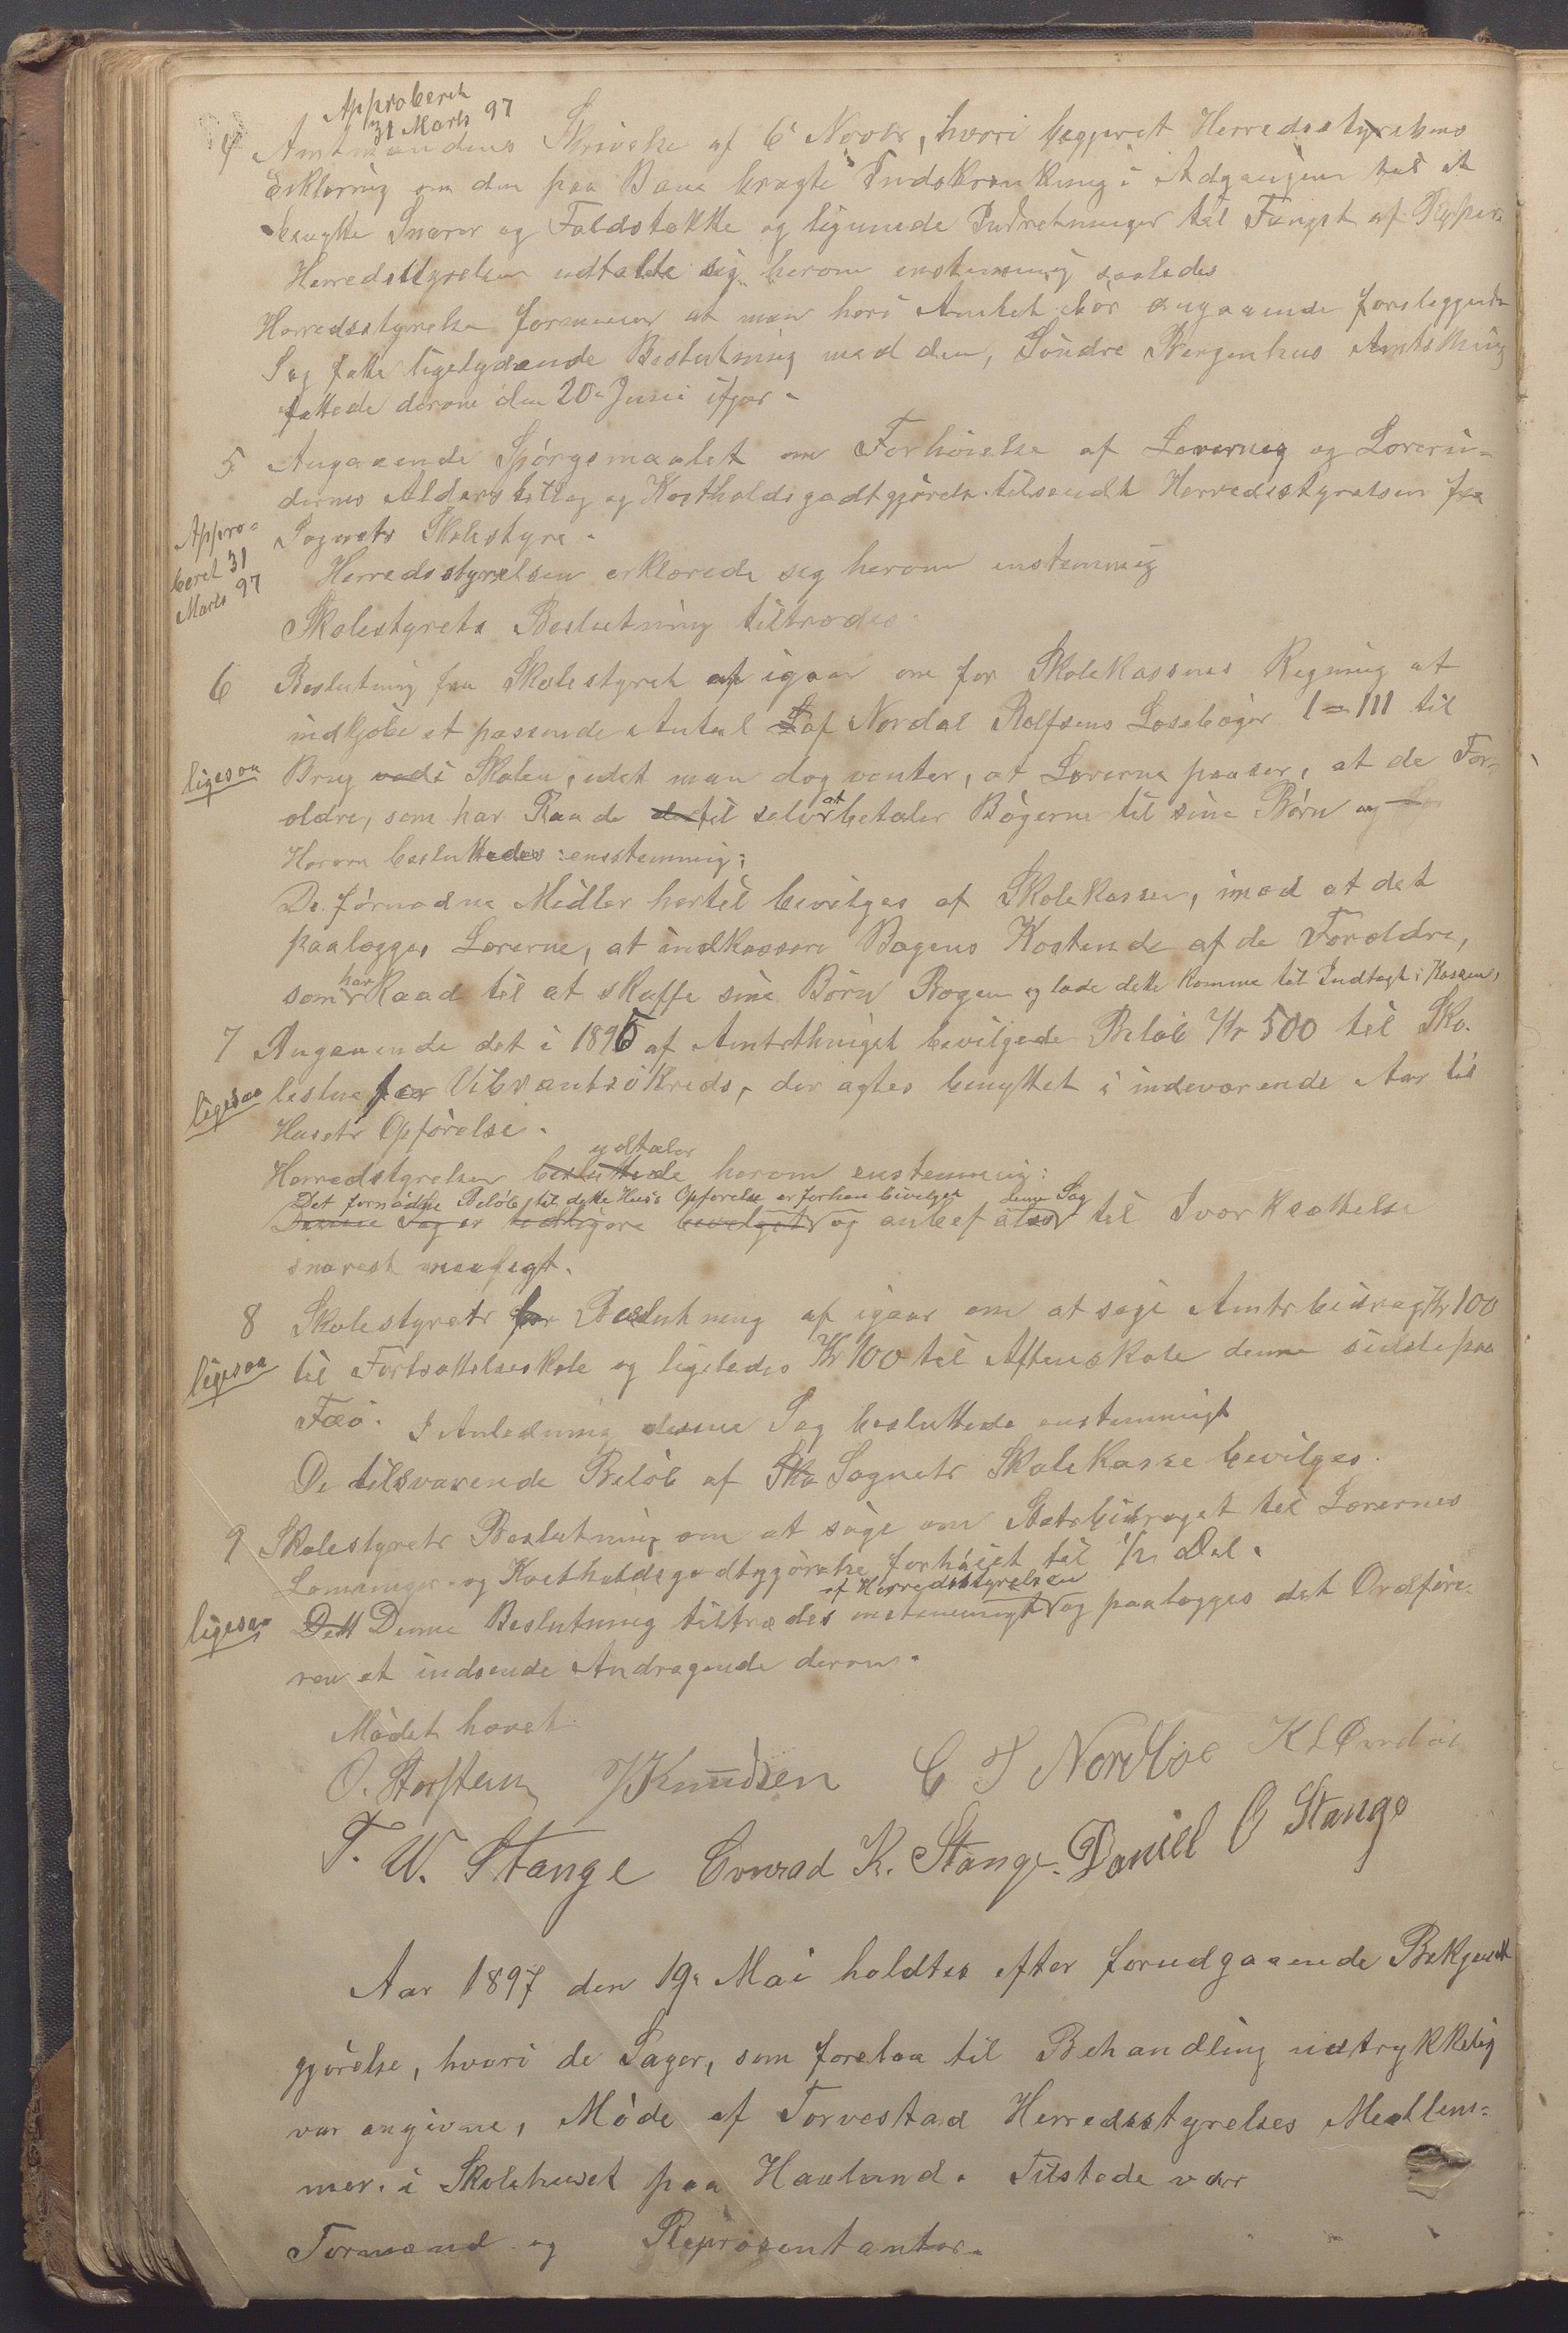 Approberet
31 Marts 97
4 Amtmandens Skrivelse af 6 Novbr, hvori begjæret Herredsstyrelsens
Erklæring om den paa Bane bragte Indskrænkning i Adgangen til at
benytte Snarer og Faldstokke og lignende Indretninger til Fangst af Ryper.
Herredsstyrelsen udtalte sig herom enstemmig saaledes
Herredsstyrelsen formener at man her i Amtet bør angaaende foreliggende
Sag fatte ligelydende Beslutning med den, Søndre Bergenhus Amtsthing
fattede derom den 20de Juni ifjor.
5 Angaaende Spørgsmaalet om Forhøielse af Lærernes og Lærerin-
dernes Alderstillæg og Kostholdsgodtgjørelse tilsendt Herredsstyrelsen fra
Appro-
beret 31
Marts 97
Sognets Skolestyre.
Herredsstyrelsen erklærede sig herom enstemmig
Skolestyrets Beslutning tiltrædes.
6 Beslutning fra Skolestyret af igaar om for Skolekassens Regning at
indkjøbe et passende Antal af Nordal Rolfsens Læsebøger I–III til
ligesaa Brug ved i Skolen, idet man dog venter, at Lærerne paaser, at de For-
ældre, som har Raad dertil selv at betaler Bøgerne til sine Børn og
Herom besluttedes enstemmig:
De fornødne Midler hertil bevilges af Skolekassen, imod at det
paalægges Lærerne, at indkassere Bogens Kostende af de Forældre,
som har Raad til at skaffe sine Børn Bogen og lade dette komme til Indtægt i Kassen,
7 Angaaende det i 1895 af Amtsthinget bevilgede Beløb Kr 500 til Sko-
ligesaa lestue for Vibrandsø Kreds, der agtes benyttet i indeværende Aar til
Husets Opførelse.
Herredstyrelsen besluttede udtaler herom enstemmig:
Det fornødne Beløb til dette Huses Opførelse er forhen bevilget
Denne Sag er tidligere bevilget og anbefales denne Sag til Iværksættelse
snarest muligt.
8 Skolestyrets for Beslutning af igaar om at søge Amtsbidrag Kr 100
ligesaa til Fortsættelseskole og ligeledes Kr 100 til Aftenskole denne sidste paa
Fæø. I Anledning denne Sag besluttede enstemmigt
De tilsvarende Beløb af Sko Sognets Skolekasse bevilges.
9 Skolestyrets Beslutning om at søge om Statsbidraget til Lærernes
Lønninger og Kostholdsgodtgjørelse forhøiet til 1/2 Del.
ligesaa Dett Denne Beslutning tiltrædes af Herredsstyrelsen enstemmigt og paalægges det Ordføre-
ren at indsende Andragende derom.
Mødet hævet
O. Storsten J Knudsen C T Nordbøe
T. W. Stange Conrad K. Stange. Daniel O Stange
Aar 1897 den 19de Mai holdtes efter forudgaaende Bekjendt
gjørelse, hvori de Sager, som forelaa til Behandling udtrykkelig
var angivne, Møde af Torvestad Herredsstyrelses Medlem-
mer i Skolehuset paa Haaland. Tilstede var
Formænd og Repræsentanter.